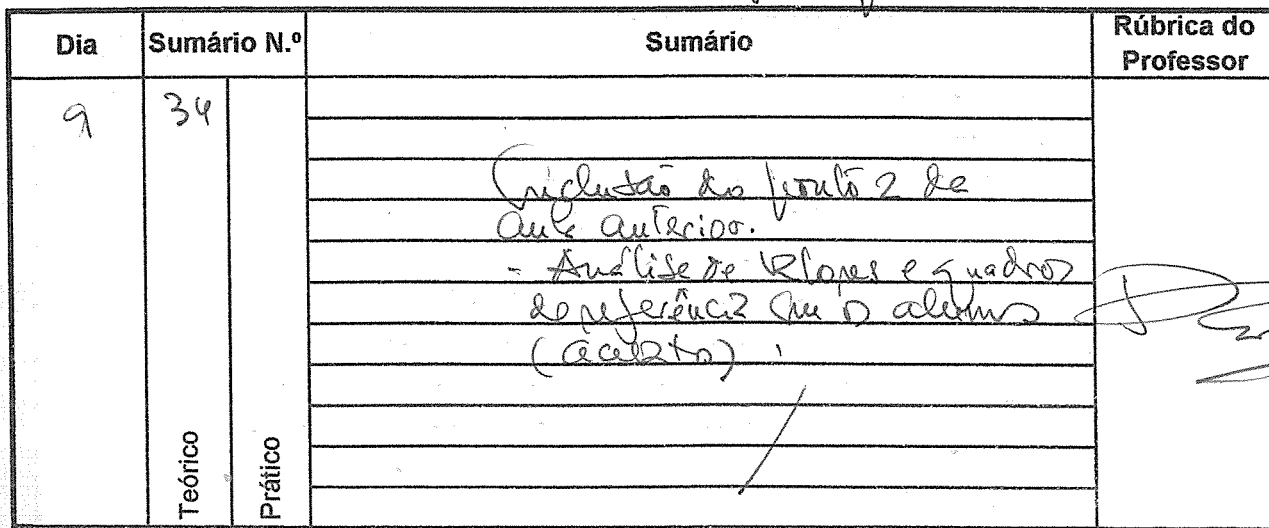 Dia Sumário N.º Sumário Rúbrica do Professor
9 34
Conclusão do ponto 2 da
aula anterior.
- Análise de valores e quadros
de referência com os alunos
Teórico Prático